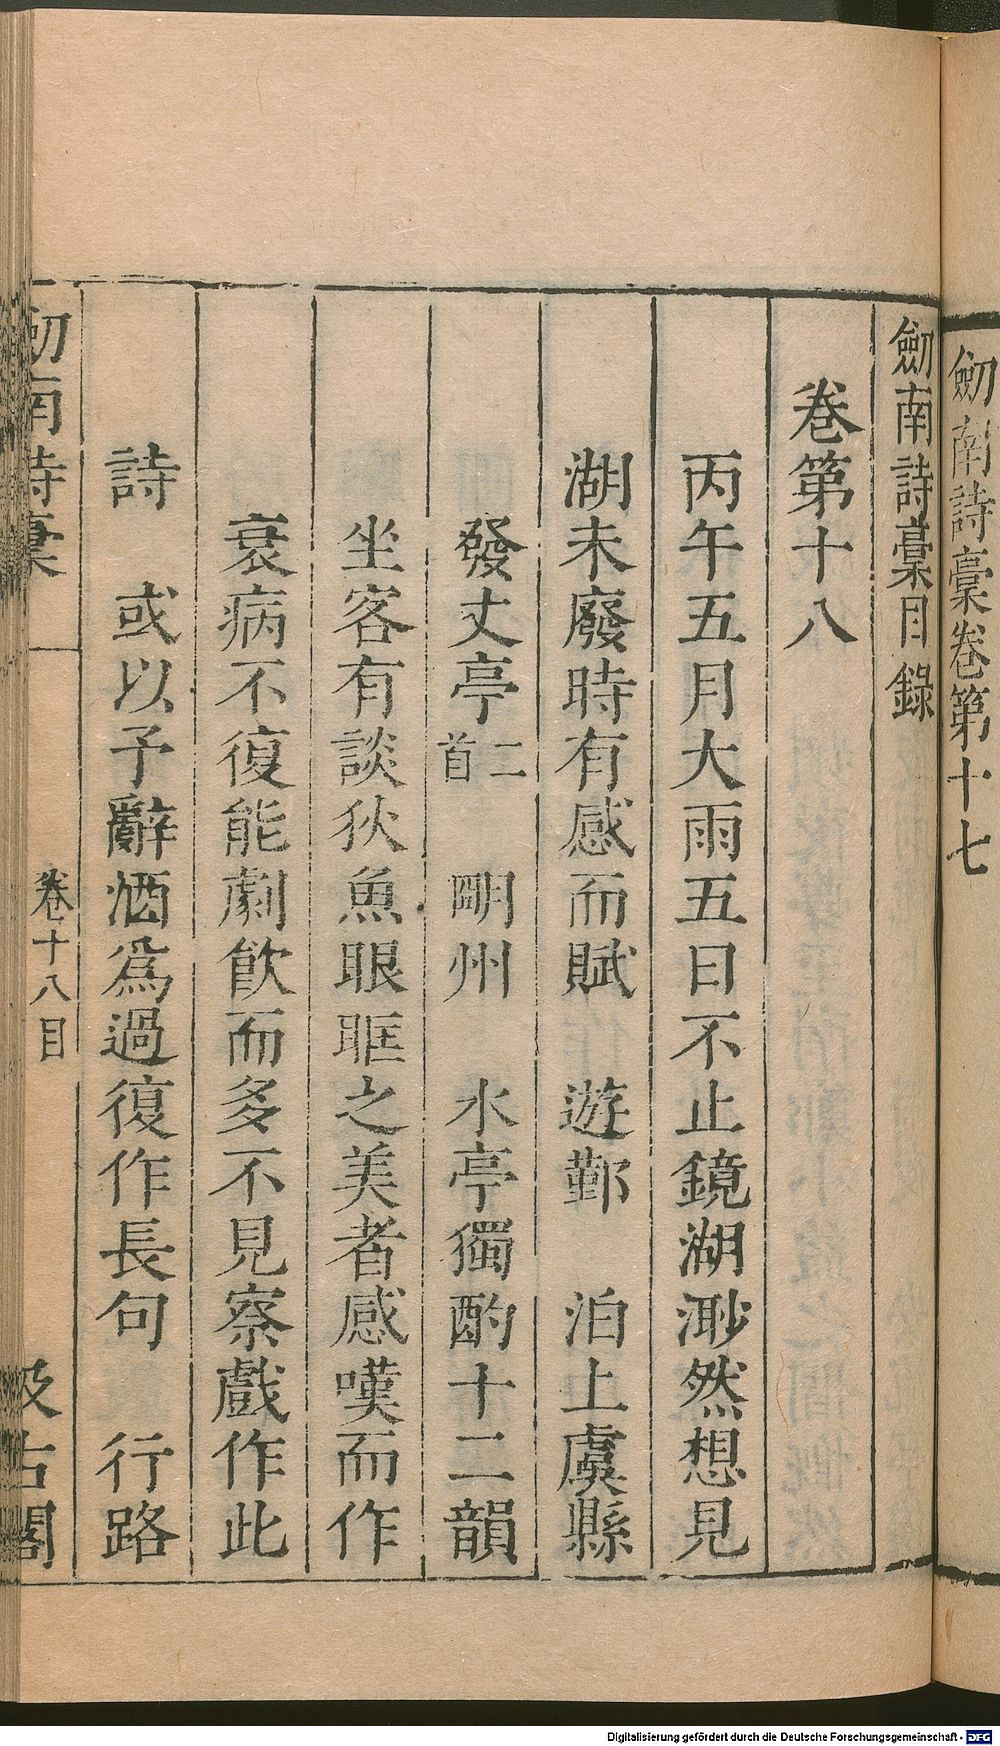 劒南詩稾卷第十七
劒南詩稾目錄
卷第十八
丙午五月大雨五日不止鏡湖渺然想見
湖未廢時有感而賦　遊鄞　泊上虞縣
發丈亭二首　明州　水亭獨酌十二韻
坐客有談狄魚眼眶之美者感嘆而作
衰病不復能劇飲而多不見察戲作此
詩　或以予辭酒為過復作長句　行路
劒南詩稾　卷十八目　汲古閣
Digitalisierung gefördert durch die Deutsche Forschungsgemeinschaft - DFG